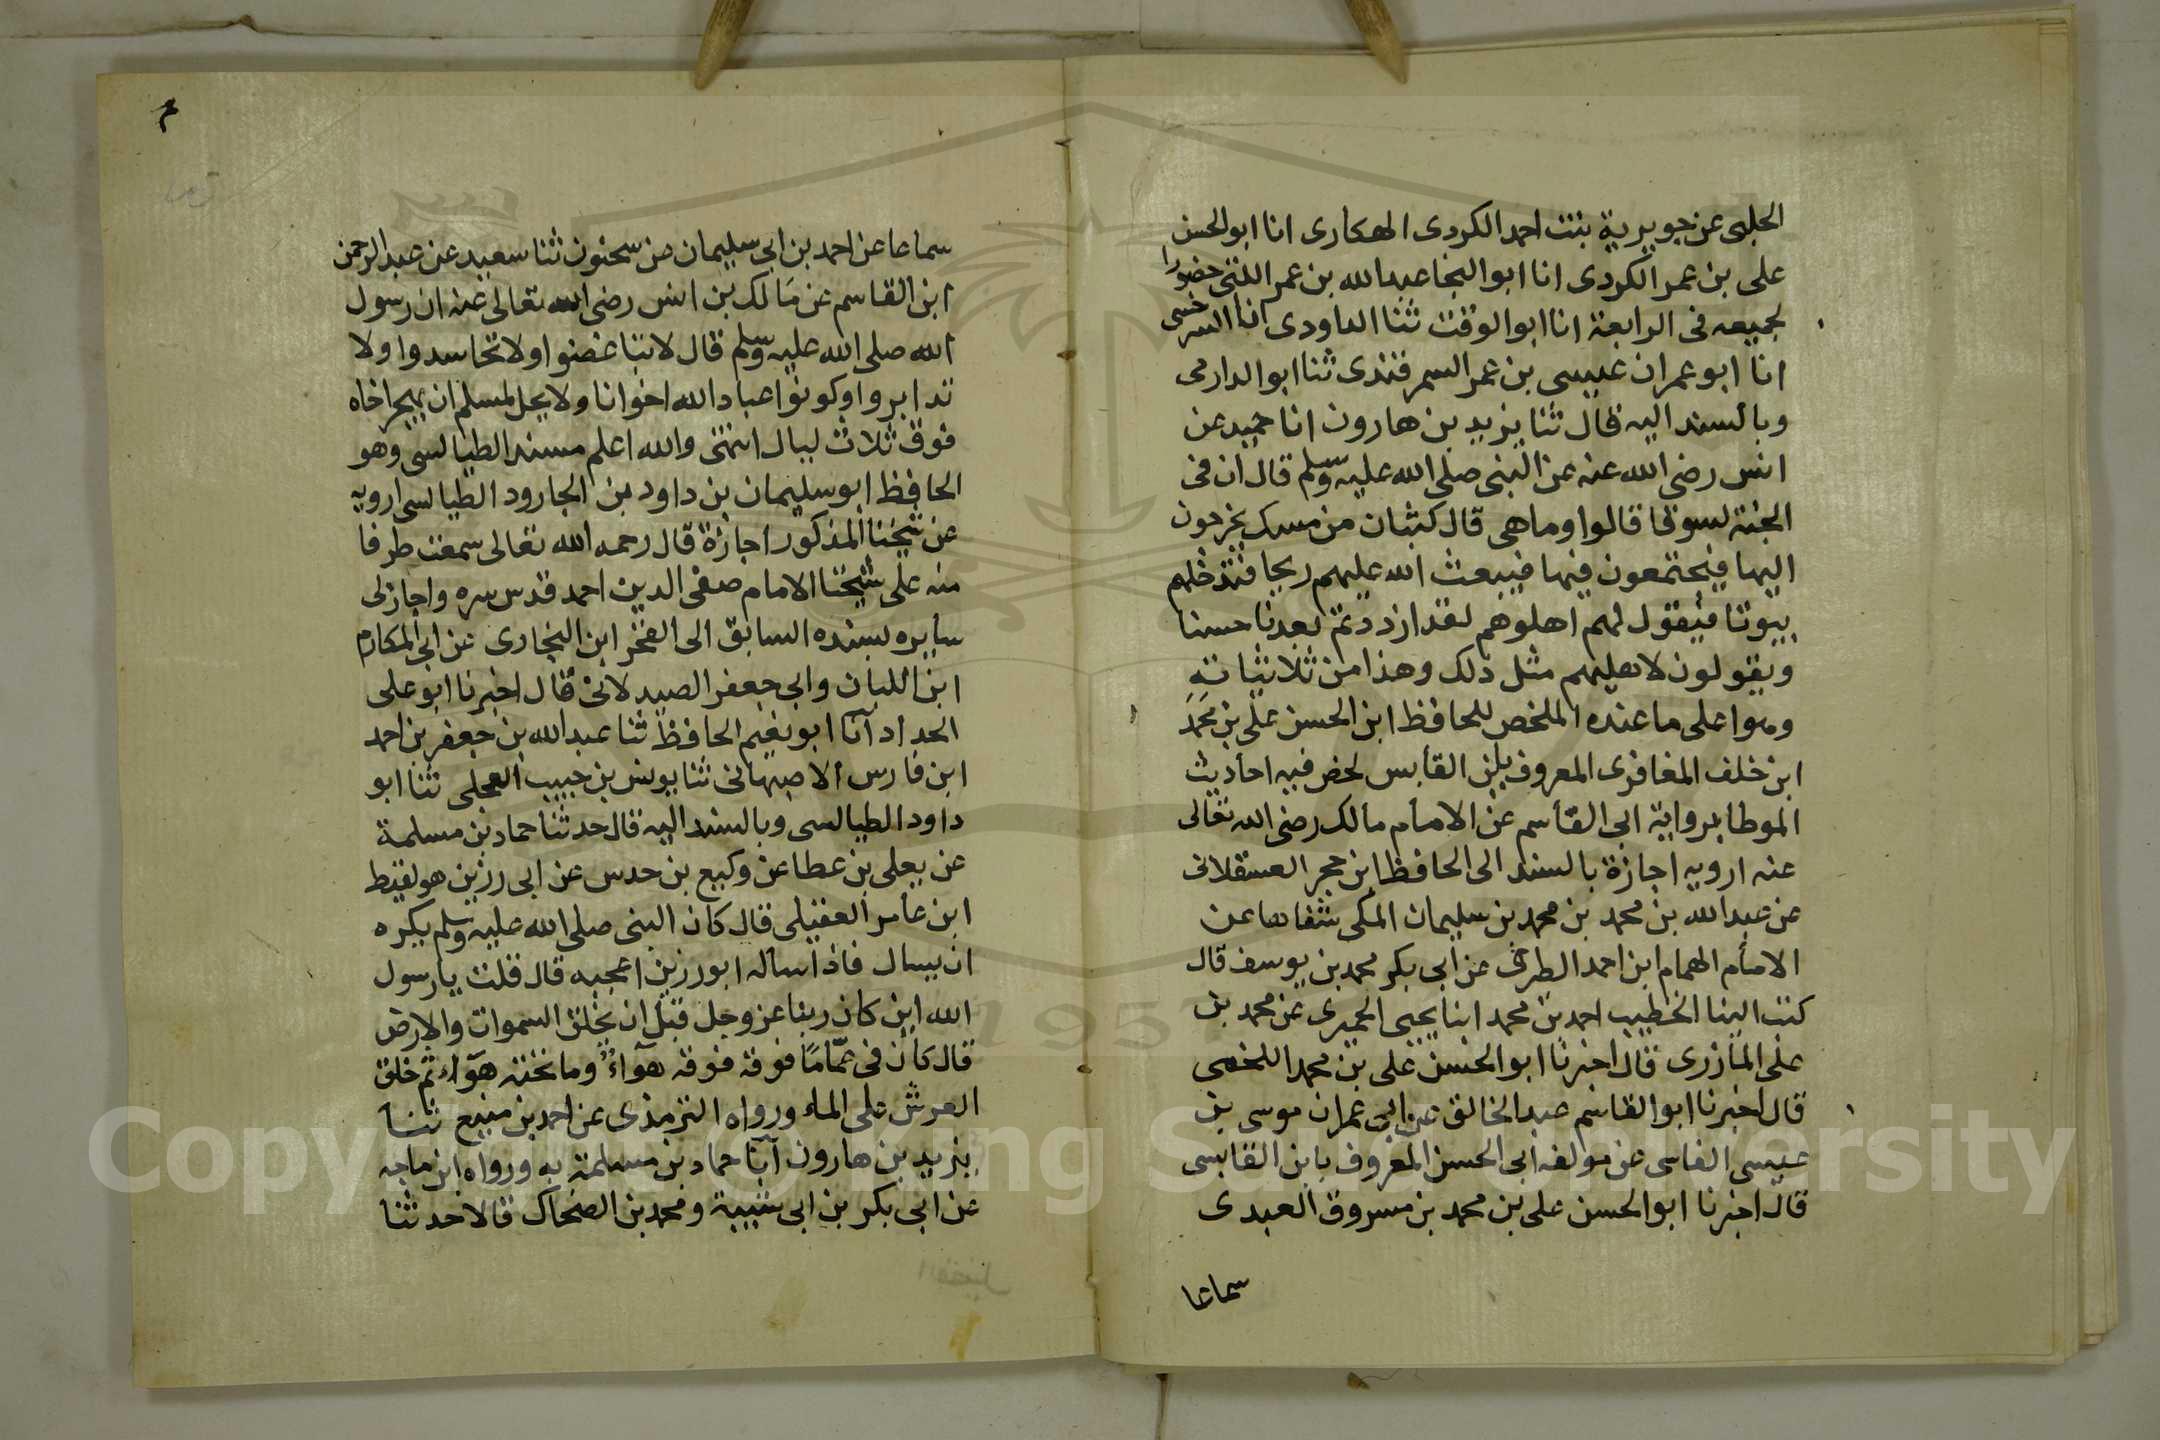 الحلبى عن جويرية بنت احمد الكردى الهكارى انا ابو الحسن
على بن عمر الكردى انا ابو النجا عبدالله بن عمر اللتى حضورا
لجميعه فى الرابعة انا ابو الوقت ثنا الداودى انا السرخسى
انا ابو عمران عيسى بن عمر السمرقندى ثنا ابو الدارمى
وبالسند اليه قال ثنا يزيد بن هارون انا حميد عن
انس رضى الله عنه عن النبى صلى الله عليه وسلم قال ان فى
الجنة لسوقا قالوا وما هى قال كثبان من مسك يخرجون
اليها فيجتمعون فيها فيبعث الله عليهم ريحا فتدخلهم
بيوتا فيقول لهم اهلوهم لقد ازددتم بعدنا حسنا
ويقولون لاهليهم مثل ذلك وهذا من ثلاثياته
وهوا على ما عنده الملخص للحافظ ابن الحسن على بن محمد
ابن خلف المغافرى المعروف بابن القابس لخص فيه احاديث
الموطا برواية ابى القاسم عن الامام مالك رضى الله تعالى
عنه ارويه اجازة بالسند الى الحافظ ابن حجر العسقلانى
عن عبد الله بن محمد بن محمد بن سليمان المكى شفاها عن
الامام الهمام ابن احمد الطرقى عن ابى بكر محمد بن يوسف قال
كتب الينا الخطيب احمد بن محمد انبا يحيى الحميرى عن محمد بن
على المازرى قال اخبرنا ابو الحسن على بن محمد اللخمى
قال اخبرنا ابو القاسم عبد الخالق عن ابى عمران موسى بن
عيسى الفاسى عن مولفه ابى الحسن المعروف بابن القابسى
قال اخبرنا ابو الحسن على بن محمد بن مسروق العبدى
سماعا
سماعا عن احمد بن ابى سليمان عن سحنون ثنا سعيد عن عبد الرحمن
ابن القاسم عن مالك بن انس رضى الله تعالى عنه ان رسول
الله صلى الله عليه وسلم قال لا تباغضوا ولا تحاسدوا ولا
تدابروا وكونوا عباد الله اخوانا ولا يحل لمسلم ان يهجر اخاه
فوق ثلاث ليال انتهى والله اعلم مسند الطيالسى وهو
الحافظ ابو سليمان بن داود بن الجارود الطيالسى ارويه
عن شيخنا المذكور اجازة قال رحمه الله تعالى سمعت طرفا
منه على شيخنا الامام صفى الدين احمد قدس سره واجاز لى
سايره بسنده السابق الى الفخر ابن البخارى عن ابى المكارم
ابن اللبان وابى جعفر الصيدلانى قال اخبرنا ابو على
الحداد آنا ابو نعيم الحافظ ثنا عبد الله بن جعفر بن احمد
ابن فارس الاصبهانى ثنا يونس بن حبيب العجلى ثنا ابو
داود الطيالسى وبالسند اليه قال حدثنا حماد بن مسلمة
عن يعلى بن عطا عن وكيع بن حدس عن ابى رزين هو لقيط
ابن عامر العقيلى قال كان النبى صلى الله عليه وسلم يكره
ان يسال فاذا ساله ابو رزين اعجبه قال قلت يارسول
الله اين كان ربنا عز وجل قبل ان يخلق السموات والارض
قال كان فى عماما فوقه فوقه هوآء وما تحته هوآء ثم خلق
العرش على الماء ورواه الترمذى عن احمد بن منيع ثنا
يزيد بن هارون آنا حماد بن مسلمة به ورواه ابن ماجه
عن ابى بكر بن ابى شيبة ومحمد بن الضحاك قالا حدثنا
1957
Copyright © King Saud University